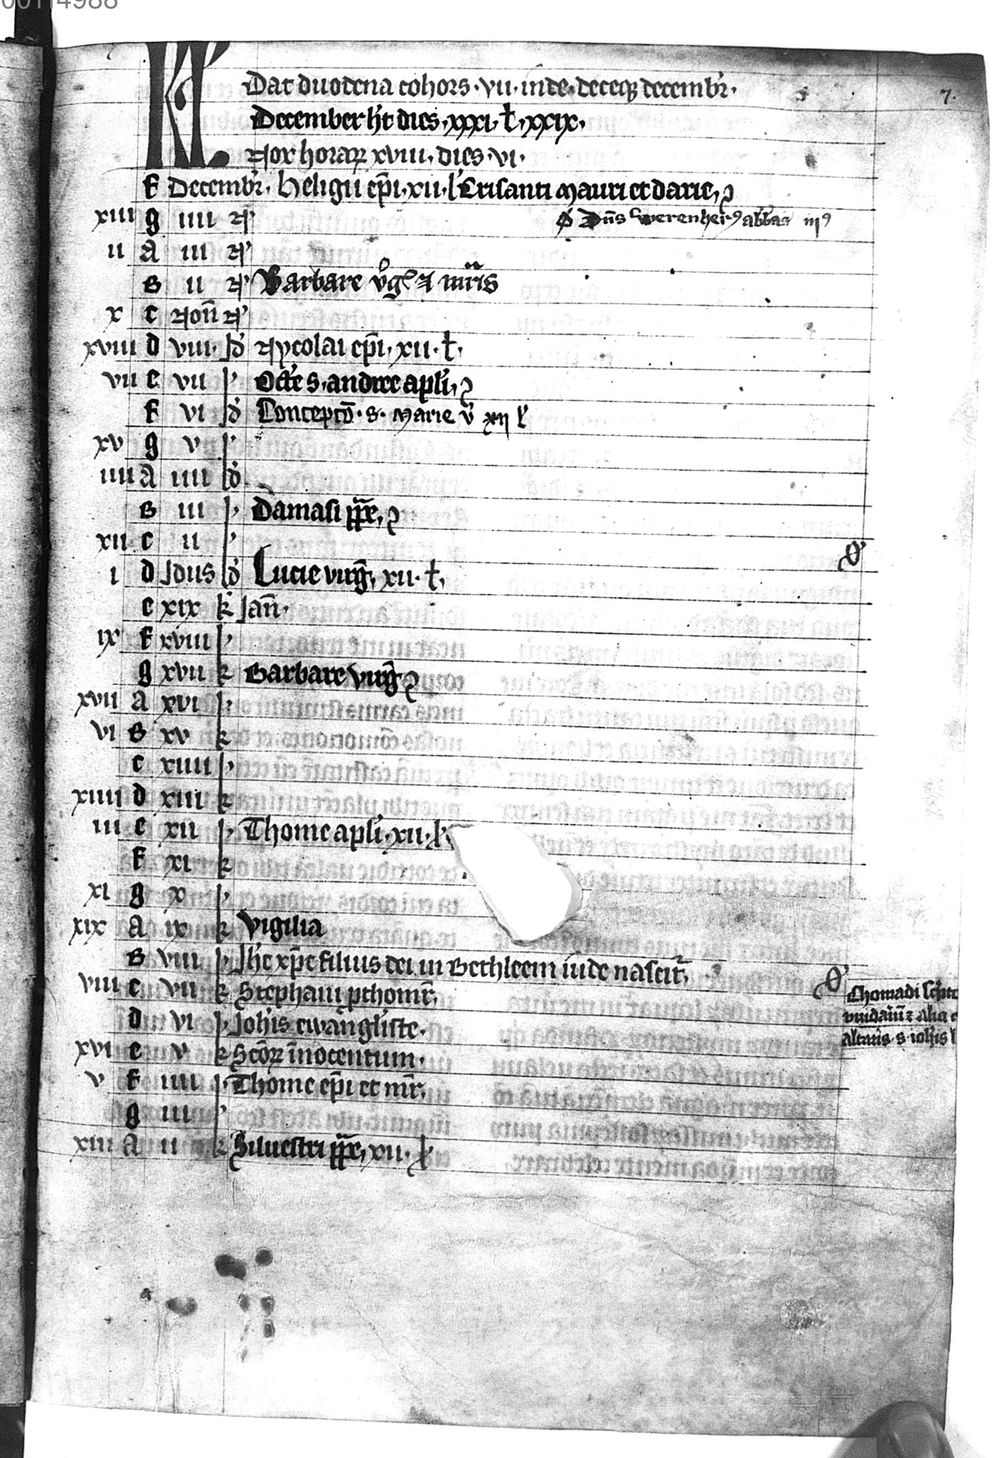 00114988
7.
KL Dat duodena cohors · vii · inde · deceq; decembr̄ ·
December h̄t dies · xxxi · l̄ · xxix ·
Nox horaꝝ xviii · dies · vi ·
F Decembr̄ · heligii ep̄i · xii · l̄ Crisanti mauri et darie,
xiii g iiii N̄ Dn̄s Werenherꝰ abbas iiiꝰ
ii A iii N̄
B ii N̄ Barbare v̊g̅ ⁊ mr̄is
x c Non̄ N̄
xviii d viii · Id̄ Nycolai ep̄i · xii · l̄ ·
vii e vii I Oct̄e s · andree apl̄i,
F vi Id̄ Concepcō · s · marie v̄ xii l̄
xv g v I
iiii A iiii Id̄
B iii I Damasi pp̄e,
xii c ii I
i d Idus Id̄ Lucie virḡ, xii · l̄,
e xix k̄ Jan̄ ·
ix F xviii
g xvii k̄ Barbare virḡ
xvii A xvi
vi B xv k̄
c xiiii
xiiii d xiii k̄
iii e xii Thome apl̄i · xii · l̄
F xi k̄
xi g x
xix A ix k̄ Vigilia
B viii Ih̄c xp̄c filius dei in Bethleem iude nascit̄,
viii c vii k̄ Stephani ꝓthomr̄,
d vi Joh̄is ewangliste ·
xvi e v k̄ Sc̄oꝝ īnocentum ·
v F iiii Thome ep̄i et mr̄,
g iii
xiii A ii k̄ Siluestri pp̄e, xii · l̄
altaris · s · ioh̄is